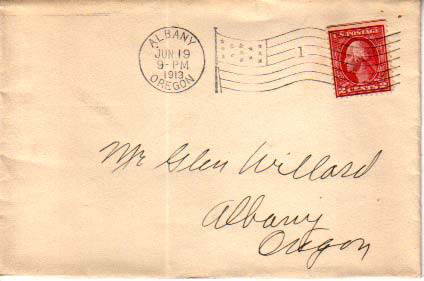 ALBANY
JUN 19
9-PM
1913
OREGON
1
U.S. POSTAGE
2 CENTS 2
Mr Glen Willard
Albany
Oregon